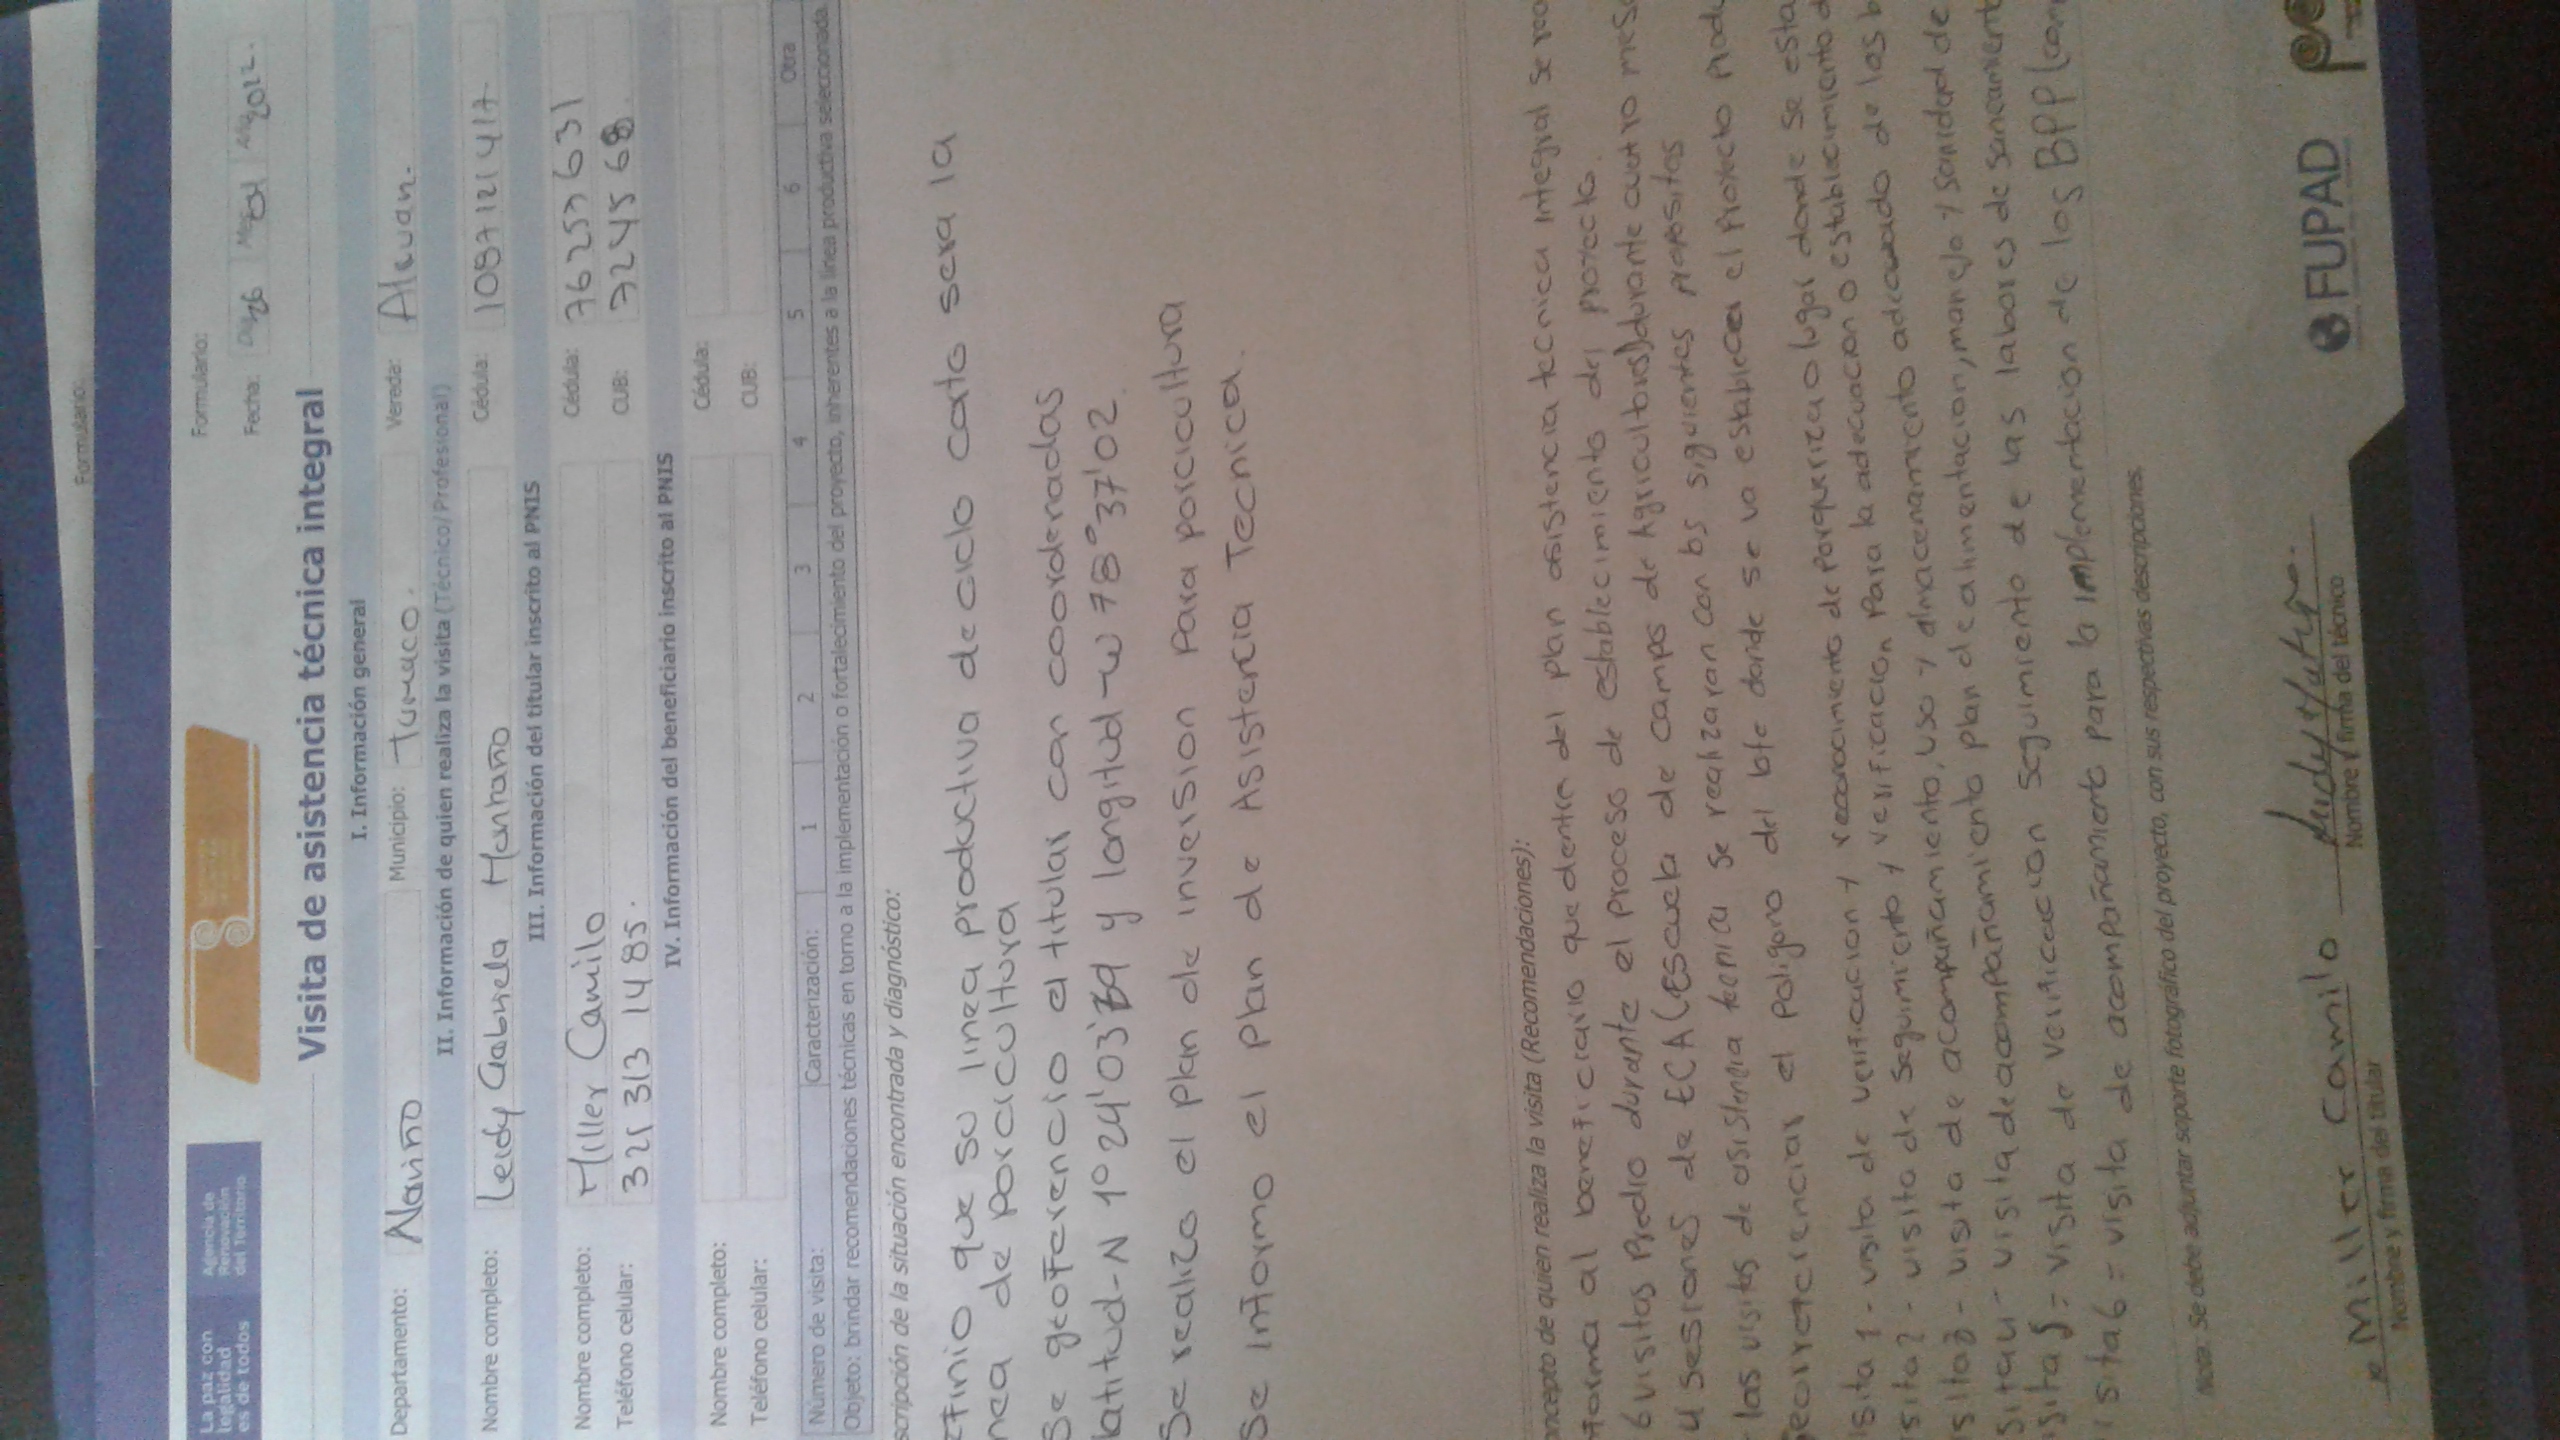 Formulario:
La paz con
legalidad
es de todos
Agencia de
Renovación
del Territorio
Formulario:
Fecha: 26 2022.
Visita de asistencia técnica integral
I. Información general
Departamento: Nariño Municipio: Tumaco. Vereda:
II. Información de quien realiza la visita (Técnico/Profesional)
Nombre completo: Leidy Gabriela Montaño Cédula: 1087121417
III. Información del titular inscrito al PNIS
Nombre completo: Miller Camilo Cédula: 76257631
Teléfono celular: 321 313 1485. CUB: 724568
IV. Información del beneficiario inscrito al PNIS
Nombre completo: Cédula:
Teléfono celular: CUB:
Número de visita: Caracterización: 1 2 3 4 5 6 Otra
Objeto: brindar recomendaciones técnicas en torno a la implementación o fortalecimiento del proyecto, inherentes a la línea productiva seleccionada.
scripción de la situación encontrada y diagnóstico:
efinio que su linea productiva de ciclo corto sera la
nea de porcicultura
Se georeferencio el titular con coordenadas
latitud-N 1° 24' 03 y longitud-w 78°37'02
Se realizo el plan de inversion para porcicultura
Se informo el plan de Asistencia Tecnica.
oncepto de quien realiza la visita (Recomendaciones):
nforma al beneficiario que dentro del plan asistencia tecnica integral se
6 visitas predio durante el proceso de establecimiento del proyecto.
4 sesiones de ECA (Escuela de campo de Agricultores) durante cuatro mes
las visitas de asistencia tecnica se realizaran con los siguientes propositos
Georreferenciar el poligono del lote donde se va establecer el proyecto produ
isita 1 - visita de verificacion y reconocimiento de porqueriza o lugar donde se esta
isita 2 - visita de seguimiento y verificacion para la adecuacion o establecimiento d
isita 3 - visita de acompañamiento, uso y almacenamiento adecuado de los b
isita 4 - visita de acompañamiento plan de alimentacion, manejo y sanidad de
isita 5 = visita de verificacion seguimiento de las labores de saneamient
isita 6 = visita de acompañamiento para la implementacion de los BPP
Nota: Se debe adjuntar soporte fotográfico del proyecto, con sus respectivas descripciones.
Miller Camilo
Nombre y firma del titular
Nombre y firma del técnico
FUPAD